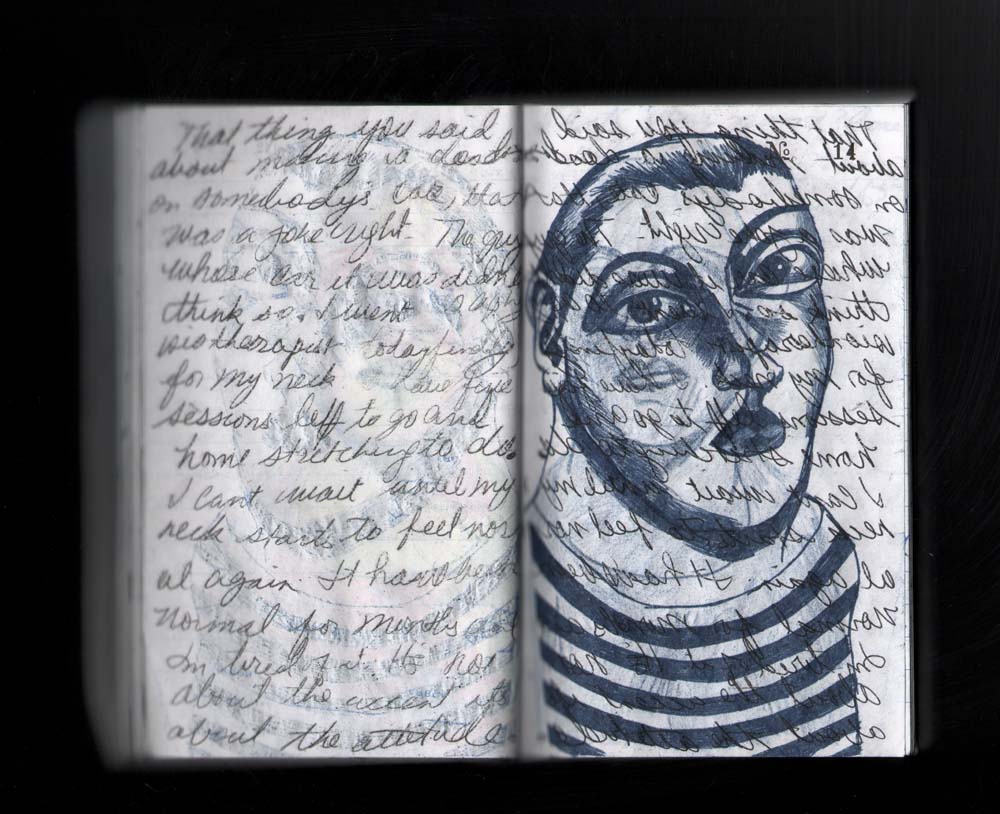 That thing you said
about making a
on somebody's
was a joke right The guy
whose car it was didn't
think so. I went
siotherapist today
for my neck I have five
sessions left to go and
home stretching to do.
I cant wait until my
neck starts to feel nor
al again. It hasn't been
Normal for months and
Im tired of it. Its not
about the accent its
about the attitude.
14